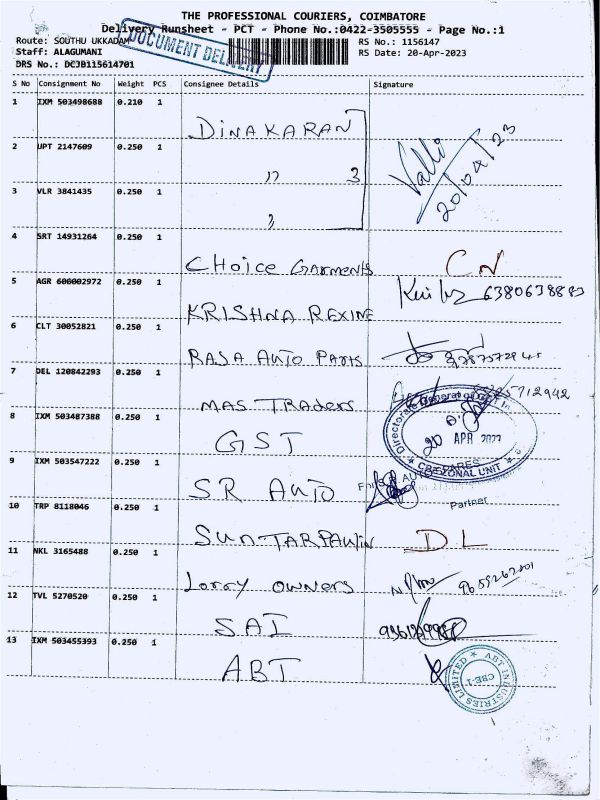 THE PROFESSIONAL COURIERS, COIMBATORE
Delivery Runsheet - PCT - Phone No.:0422-3505555 - Page No.:1
Route: SOUTHU UKKADAM
RS No.: 1156147
Staff: ALAGUMANI
RS Date: 20-Apr-2023
DRS No.: DCJB115614701
DOCUMENT DELIVERY
S No Consignment No Weight PCS Consignee Details Signature
1 IXM 503498688 0.210 1 DINAKARAN
2 UPT 2147609 0.250 1 " 3
Valli 20/04/23
3 VLR 3841435 0.250 1 "
4 SRT 14931264 0.250 1 CHOICE GARMENTS CN
5 AGR 600002972 0.250 1 KRISHNA REXINE 6380638883
6 CLT 30052821 0.250 1 RASA AUTO PARTS
7 DEL 120842293 0.250 1 MAS TRADERS
8 IXM 503487388 0.250 1 GST
Directorate General of
20 APR 2023
ZONAL UNIT
9 IXM 503547222 0.250 1 SR AUTO
For S.R. AUTO SPARES
Partner
10 TRP 8118046 0.250 1 SUN TARPAULIN DL
11 NKL 3165488 0.250 1 LORRY OWNERS
12 TVL 5270520 0.250 1 SAI
13 IXM 503455393 0.250 1 ABT
ABT INDUSTRIES LIMITED
CBE-1